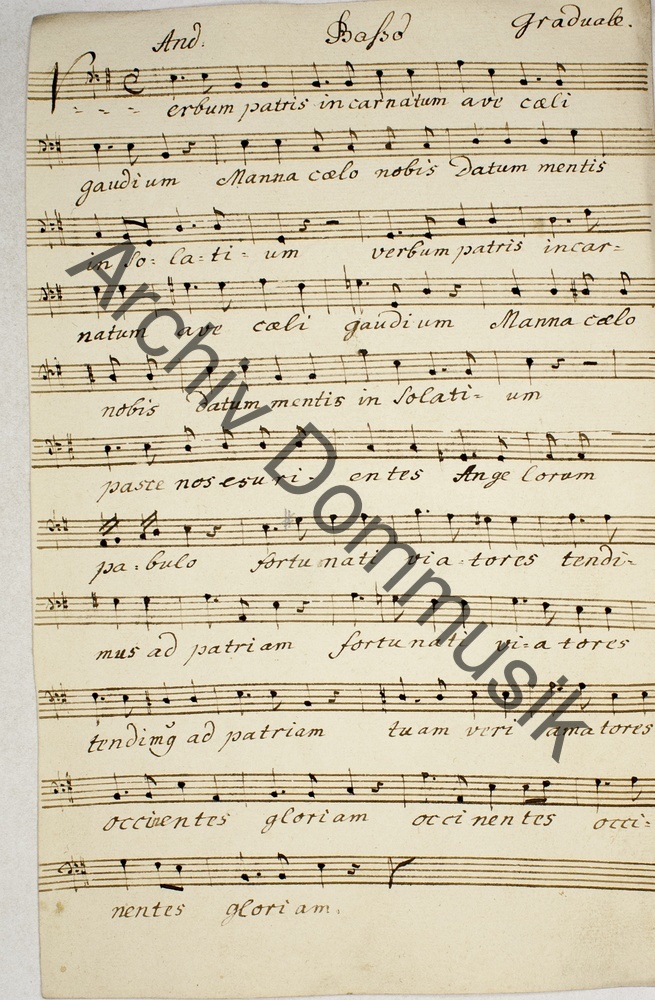 And. Basso Graduale.
Verbum patris incarnatum ave cæli
gaudium Manna cælo nobis Datum mentis
in So- la-ti- um verbum patris incar-
natum ave cæli gaudium Manna cælo
nobis datum mentis in Solati- um
pasce nos esuri- entes Ange lorum
pa-bulo fortunati via-tores tendi-
mus ad patriam fortunati vi-a tores
tendimg ad patriam tuam veri amatores
occinentes gloriam occinentes occi-
nentes gloriam.
Archiv Dommusik